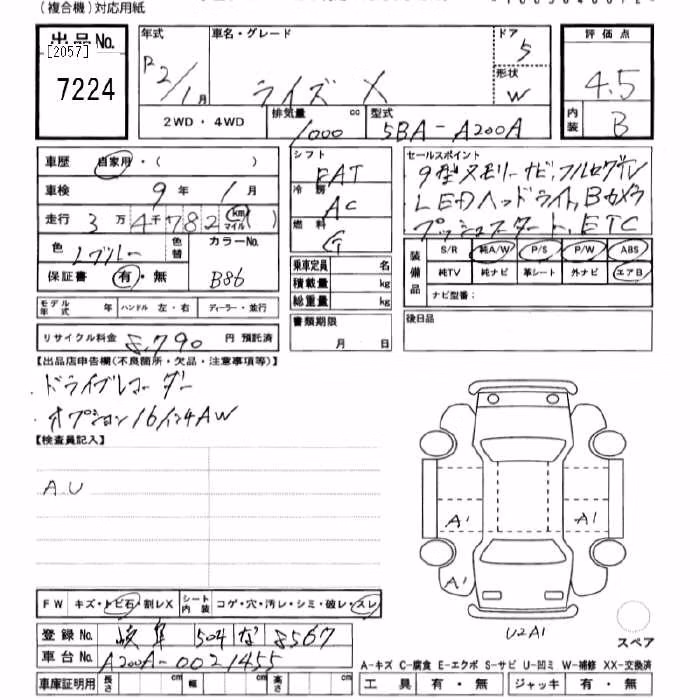 (複合機)対応用紙
出品No.
[2057]
7224
年式
R2/1月
車名・グレード
ライズ X
ドア
5
形状
W
評価点
4.5
内装
B
2WD・4WD
排気量 1000 cc
型式 5BA-A200A
車歴 自家用・( )
車検 9年 1月
走行 3万4千782 km マイル ( )
色 Lブルー
色替
カラーNo. B86
保証書 有・無
シフト FAT
冷房 AC
燃料 G
乗車定員 名
積載量 kg
総重量 kg
セールスポイント
9型メモリーナビ,フルセグTV
LEDヘッドライト,Bカメラ
プッシュスタート,ETC
装備品
S/R 純A/W P/S P/W ABS
純TV 純ナビ 革シート 外ナビ エアB
ナビ型番:
モデル年式 年 ハンドル 左・右 ディーラー・並行
書類期限 月 日
後日品
リサイクル料金 8,790 円 預託済
【出品店申告欄(不良箇所・欠品・注意事項等)】
・ドライブレコーダー
・オプション16インチAW
【検査員記入】
A.U
A1 A1
A1
U2A1
スペア
FW キズ・トビ石・割レX シート内装 コゲ・穴・汚レ・シミ・破レ・スレ
登録No. 岐阜 504 な 8567
車台No. A200A-0021455
車庫証明用 長さ cm 幅 cm 高さ cm
A-キズ C-腐食 E-エクボ S-サビ U-凹ミ W-補修 XX-交換済
工具 有・無 ジャッキ 有・無